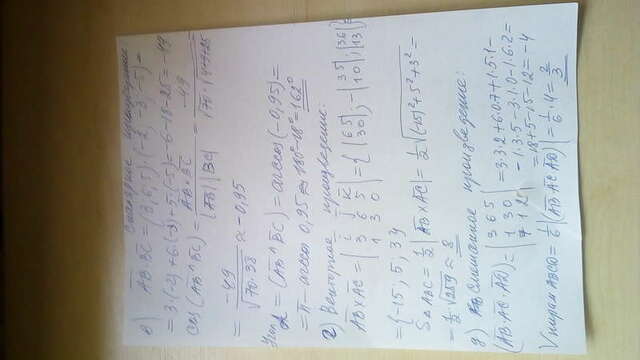 в) Скалярное произведение
AB·BC = (3, 6, 5)·(-2, -3, -5) =
= 3·(-2)+6·(-3)+5·(-5) = -6-18-25 = -49
cos(AB^BC) = AB·BC / |AB| |BC| = -49 / √70·√4+9+25 =
= -49 / √70·38 ≈ -0,95
Угол α = (AB^BC) = arccos(-0,95) =
= π - arccos 0,95 ≈ 180°-18° = 162°
г) Векторное произведение:
AB×AC = |i j k; 3 6 5; 1 3 0| = {|6 5; 3 0|; -|3 5; 1 0|; |3 6; 1 3|} =
= {-15; 5; 3}
S△ABC = 1/2 |AB×AC| = 1/2 √(-15)²+5²+3² =
= 1/2·√259 ≈ 8
д) Смешанное произведение:
(AB·AC·AD) = |3 6 5; 1 3 0; 7 1 2| = 3·3·2+6·0·7+1·5·1-
-7·3·5-3·1·0-1·6·2 =
= 18+5-15-12 = -4
Vпирам ABCD = 1/6 |(AB AC AD)| = 1/6·4 = 2/3